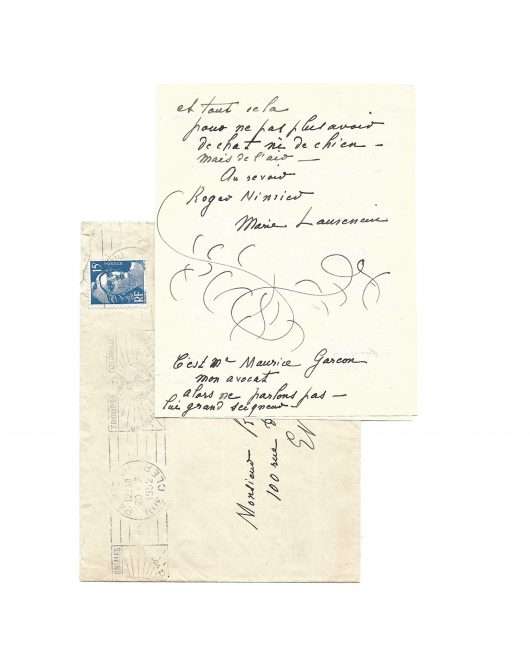 et tout cela
pour ne pas plus avoir
de chat ni de chien –
mais de l'air –
Au revoir
Roger
Marie Laurencin
C'est Me Maurice Garçon
mon avocat
alors ne parlons pas –
lui grand seigneur
15F
POSTES
RF
Monsieur R
100 rue d
EV
1952